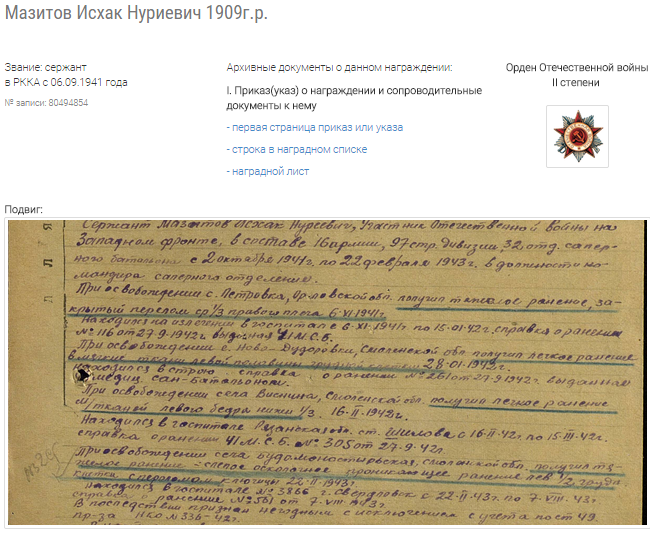 Мазитов Исхак Нуриевич 1909г.р.
Звание: сержант
в РККА с 06.09.1941 года
№ записи: 80494854
Архивные документы о данном награждении:
I. Приказ(указ) о награждении и сопроводительные
документы к нему
- первая страница приказ или указа
- строка в наградном списке
- наградной лист
Орден Отечественной войны
II степени
Подвиг:
Сержант Мазитов Исхак Нуреевич, Участник Отечественной войны на
Западном фронте, в составе 16 армии, 97 стр. Дивизии, 32 отд. сапер-
ного батальона с 2 октября 1941г. по 22 февраля 1943г. в должности ко-
мандира саперного отделения.
При освобождении с. Петровка, Орловской обл. получил тяжелое ранение, за-
крытый перелом ср 1/3 правого плеча 6-XI-1941г.
Находился на излечении в госпитале с 6-XI-1941г по 15-01-42г, справка о ранении
№ 116 от 27-9-1942г выданная 41 М.С.Б.
При освобождении с. Ново-Дудоровки, Смоленской обл получил легкое ранение
в мягкие ткани левой половины грудной клетки 28-01-1942г.
Находился в строю, справка о ранении № 261 от 27-9-1942г. выданная
медиц. сан-Батальоном.
При освобождении села Виснина, Смоленской обл, получил легкое ранение
м/тканей левого бедра нижн 1/3. 16-II-1942г.
Находился в госпитале Рязанская обл. ст. Шилова с 16-II-42г. по 15-III-42г.
справка о ранении 41 М.С.Б. № 305 от 27-9-42г.
При освобождении села Будомонастырская, Смоленской обл. получил тя-
желое ранение - слепое осколочное проникающее ранение лев 1/2 груд.
клетки с переломом ключицы 22-II-1943г.
Находился в госпитале № 3866 г. Свердловск с 22-II-43г. по 7-VIII-43г
справка о ранении № 561 от 7-VIII-1943г
В последствии признан негодным с исключением с учета по ст 49.
пр-за НКО № 336-42г.